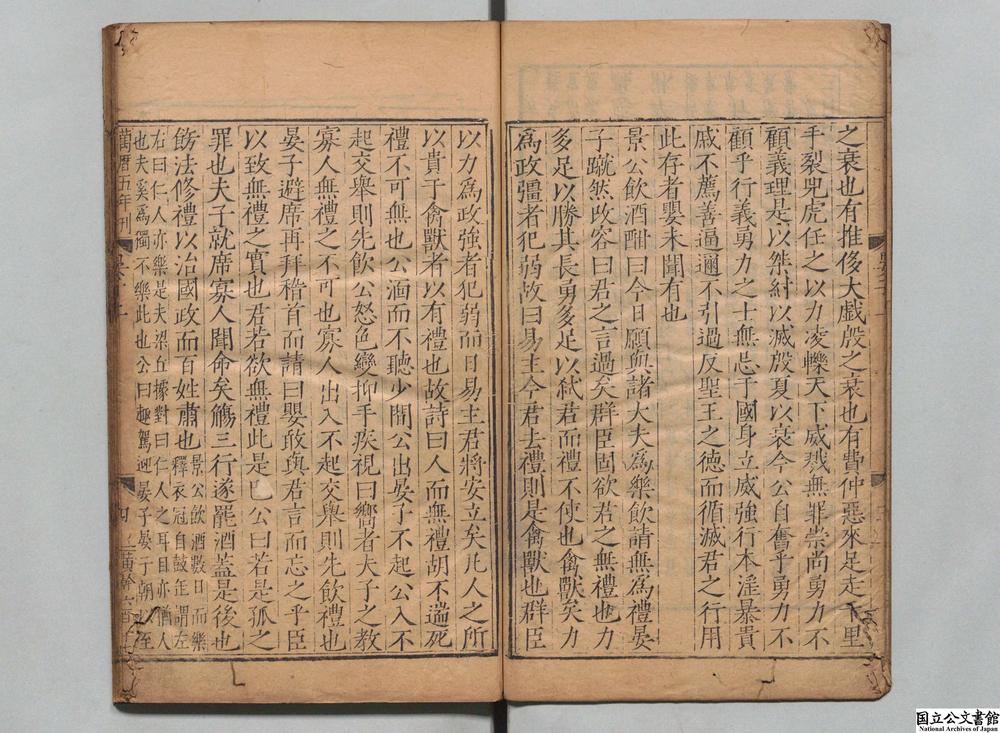 之衰也有推侈大戲殷之衰也有費仲惡來足走千里
手裂兕虎任之以力凌轢天下威戮無罪崇尚勇力不
顧義理是以桀紂以滅殷夏以衰今公自奮乎勇力不
顧乎行義勇力之士無忌于國身立威強行本淫暴貴
戚不薦善逼邇不引過反聖王之德而循滅君之行用
此存者嬰未聞有也
景公飲酒酣曰今日願與諸大夫為樂飲請無為禮晏
子蹴然改容曰君之言過矣群臣固欲君之無禮也力
多足以勝其長勇多足以弒君而禮不使也禽獸矣力
為政彊者犯弱故曰易主今君去禮則是禽獸也群臣
以力為政強者犯弱而日易主君將安立矣凡人之所
以貴于禽獸者以有禮也故詩曰人而無禮胡不遄死
禮不可無也公湎而不聽少間公出晏子不起公入不
起交舉則先飲公怒色變抑手疾視曰嚮者夫子之教
寡人無禮之不可也寡人出入不起交舉則先飲禮也
晏子避席再拜稽首而請曰嬰敢與君言而忘之乎臣
以致無禮之實也君若欲無禮此是已公曰若是孤之
罪也夫子就席寡人聞命矣觴三行遂罷酒蓋是後也
飭法修禮以治國政而百姓肅也景公飲酒數日而樂
釋衣冠自鼓缶謂左
右曰仁人亦樂是夫梁丘據對曰仁人之耳目亦猶人
也夫奚為獨不樂此也公曰趣駕迎晏子晏子朝以至
萬曆五年刊
國立公文書館
National Archives of Japan